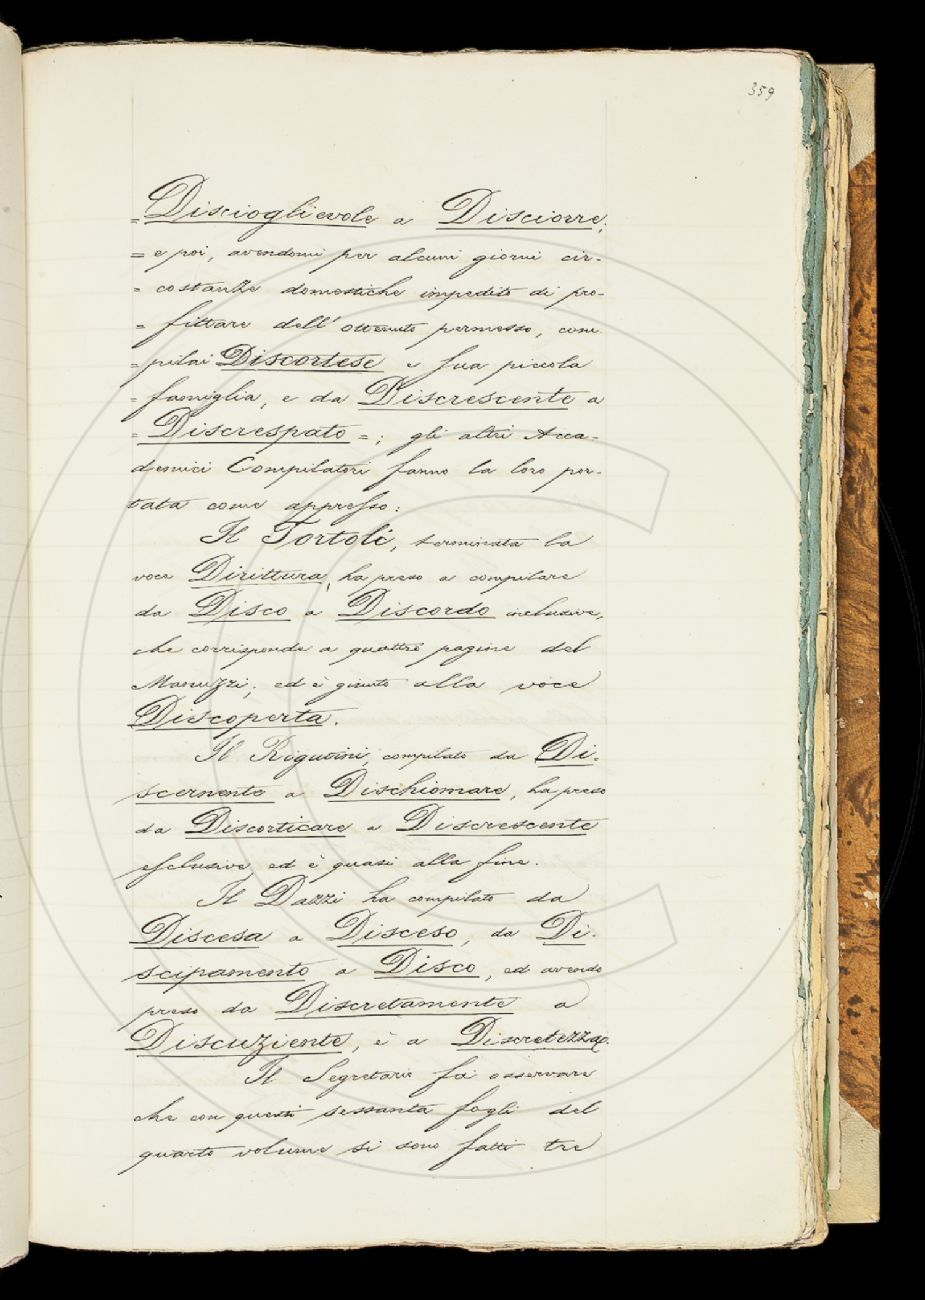 359
= Discioglievole a Disciorre;
= e poi, avendomi per alcuni giorni cir-
= costanze domestiche impedito di pro-
= fittare dell'ottenuto permesso, com
= pilai Discortese e sua piccola
= famiglia, e da Discrescente a
= Discrespato =; gli altri Acca-
demici Compilatori fanno la loro por-
tata come appresso:
Il Tortoli, terminata la
voce Dirittura, ha preso a compilare
da Disco a Discordo inclusive,
che corrisponde a quattro pagine del
Manuzzi; ed è giunto alla voce
Discoperta.
Il Rigutini, compilato da Di-
scernente a Dischiomare, ha preso
da Discorticare a Discrescente
esclusive, ed è quasi alla fine.
Il Dazzi ha compilato da
Discesa a Disceso, da Di-
scipamento a Disco, ed avendo
preso da Discretamente a
Discuziente, è a Discretezza.
Il Segretario fa osservare
che con questi sessanta fogli del
quarto volume si sono fatti tre